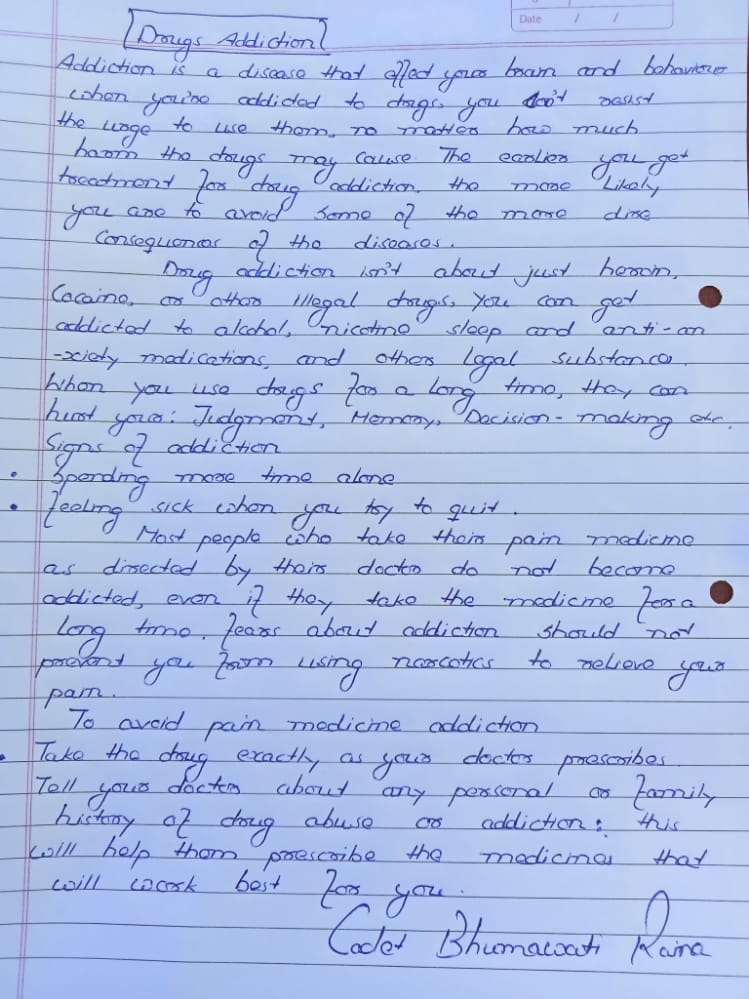 Date / /
Drugs Addiction
Addiction is a disease that affect your brain and behaviour
when you're addicted to drugs, you don't resist
the urge to use them, no matter how much
harm the drugs may cause. The earlier you get
treatment for drug addiction, the more likely
you are to avoid some of the more dire
Consequences of the diseases.
Drug addiction isn't about just heroin,
Cocaine, or other illegal drugs, You can get
addicted to alcohol, nicotine sleep and anti-an
-xiety medications, and others legal substance.
When you use drugs for a long time, they can
hurt your: Judgment, Memory, Decision-making etc.
Signs of addiction
• Spending more time alone
• Feeling sick when you try to quit.
Most people who take their pain medicine
as directed by their doctor do not become
addicted, even if they take the medicine for a
long time. Fears about addiction should not
prevent you from using narcotics to relieve your
pain.
To avoid pain medicine addiction
• Take the drug exactly as your doctor prescribes.
Tell your doctor about any personal or family
history of drug abuse or addiction; this
will help them prescribe the medicines that
will work best for you.
Cadet Bhumawati Raina